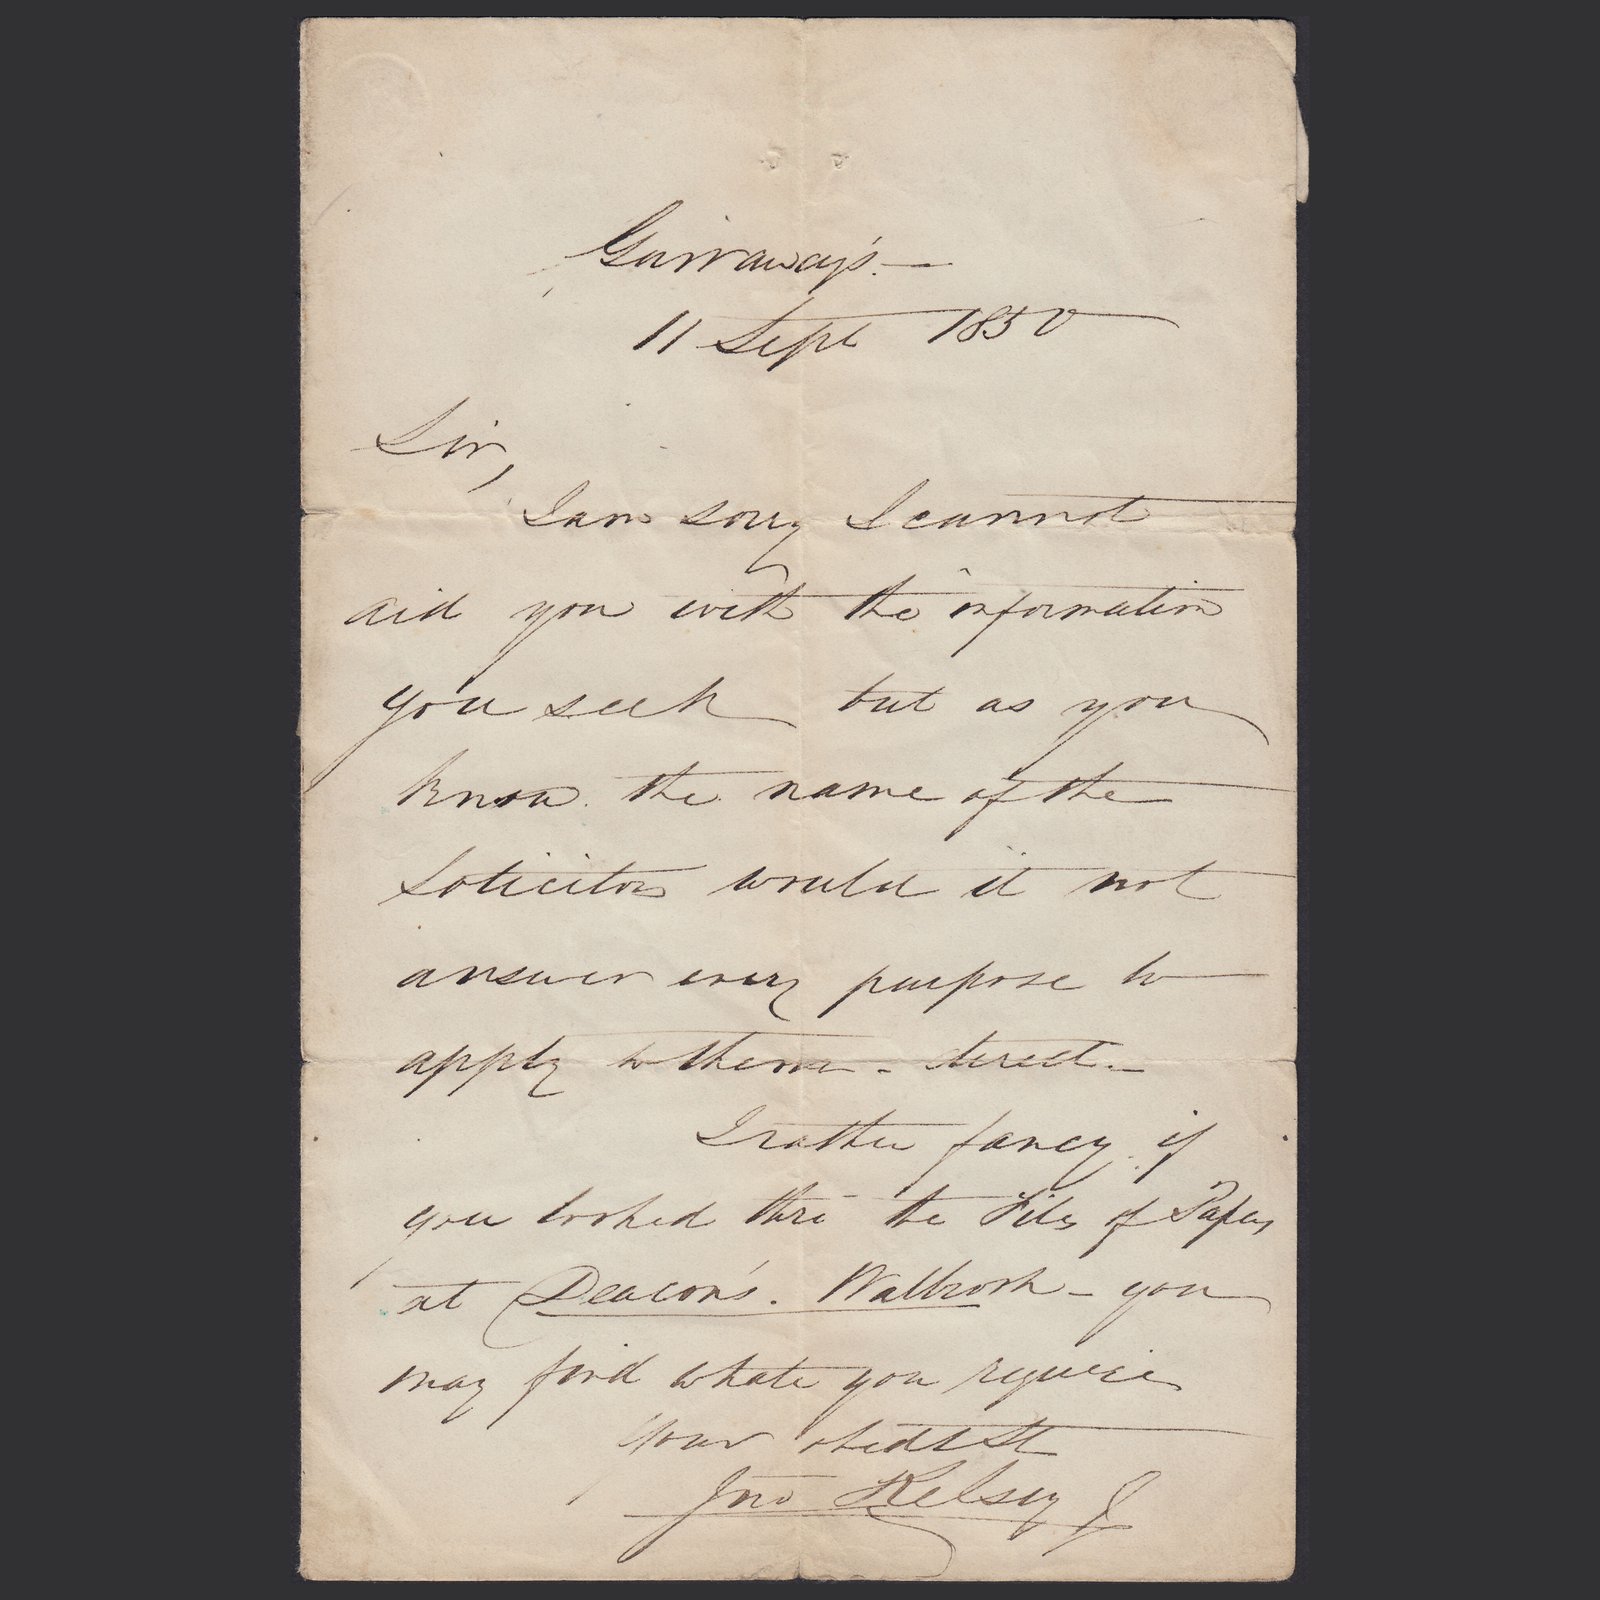 Garraway's. —
11 Sept 1850
Sir,
I am sorry I cannot
aid you with the information
you seek but as you
know the name of the
Solicitors would it not
answer every purpose to
apply to them - direct. —
I rather fancy if
you looked thro' the Files of Papers
at Deacon's. Walbrook - you
may find what you require
Your obedt St
Jno Kelsey